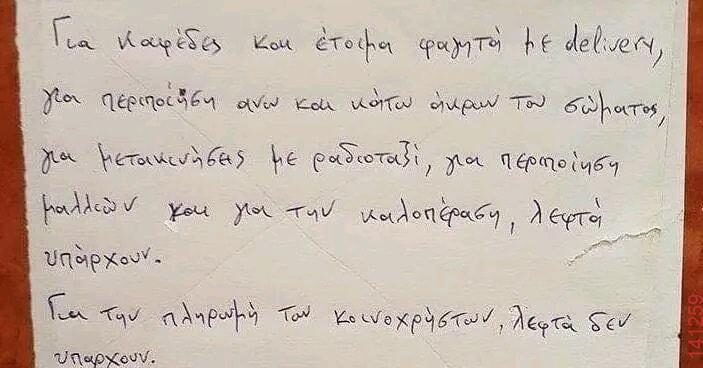 Για καφέδες και έτοιμα φαγητά με delivery,
για περιποίηση ανω και κάτω άκρων του σώματος,
για μετακινήσεις με ραδιοταξί, για περιποίηση
μαλλιών και για την καλοπέραση, λεφτά
υπάρχουν.
Για την πληρωμή των κοινοχρήστων, λεφτά δεν
υπαρχουν.
141259